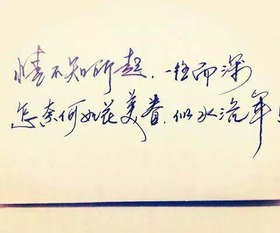 情不知所起.一往而深
怎奈何如花美眷.似水流年!